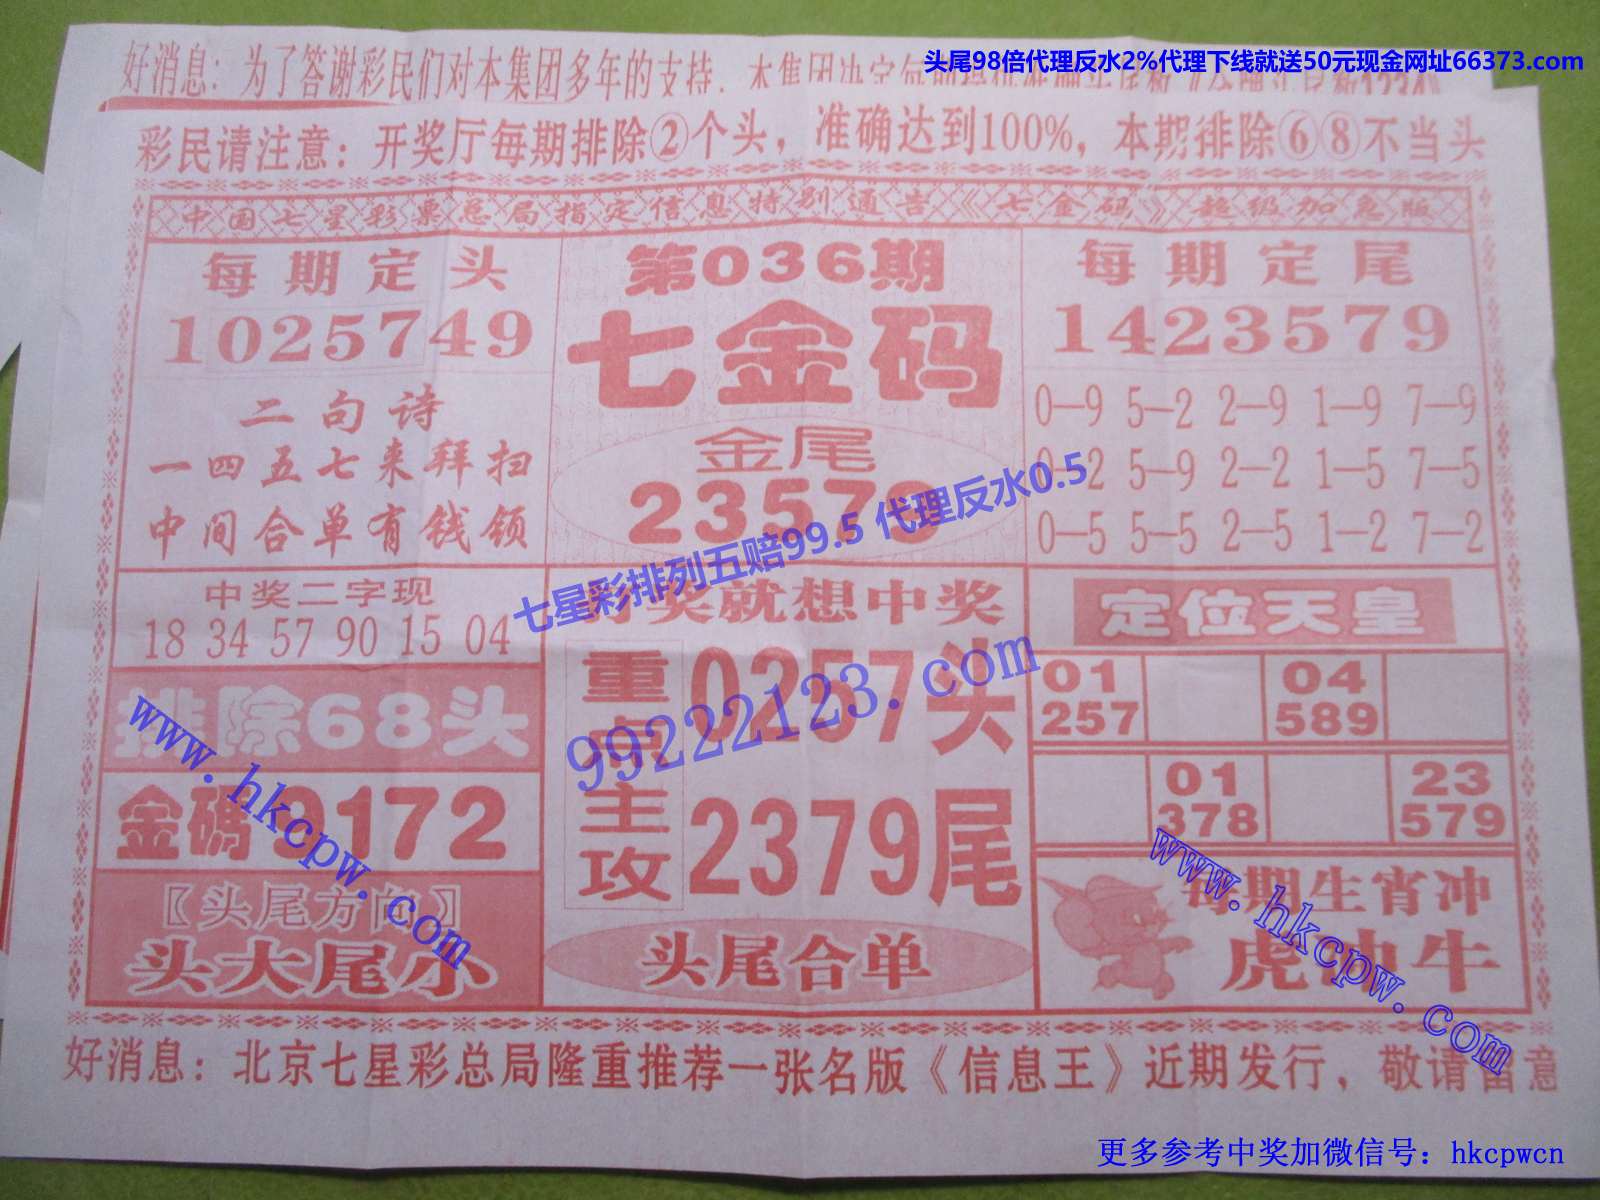 头尾98倍代理反水2%代理下线就送50元现金网址66373.com
好消息：为了答谢彩民们对本集团多年的支持，本集团决定每期提供准确
彩民请注意：开奖厅每期排除②个头，准确达到100%，本期排除⑥⑧不当头
中国七星彩票总局指定信息特别通告《七金码》超级加急版
每期定头
1025749
二句诗
一四五七来拜扫
中间合单有钱领
第036期
七金码
金尾
23579
每期定尾
1423579
0—9 5—2 2—9 1—9 7—9
0—2 5—9 2—2 1—5 7—5
0—5 5—5 2—5 1—2 7—2
七星彩排列五赔99.5 代理反水0.5
中奖二字现
18 34 57 90 15 04
排除68头
金碼9172
〖头尾方向〗
头大尾小
奖就想中奖
重点主攻
0257头
2379尾
头尾合单
定位天皇
01 04
257 589
01 23
378 579
每期生肖冲
虎冲牛
www.hkcpw.com
99222123.com
www.hkcpw.com
好消息：北京七星彩总局隆重推荐一张名版《信息王》近期发行，敬请留意
更多参考中奖加微信号：hkcpwcn